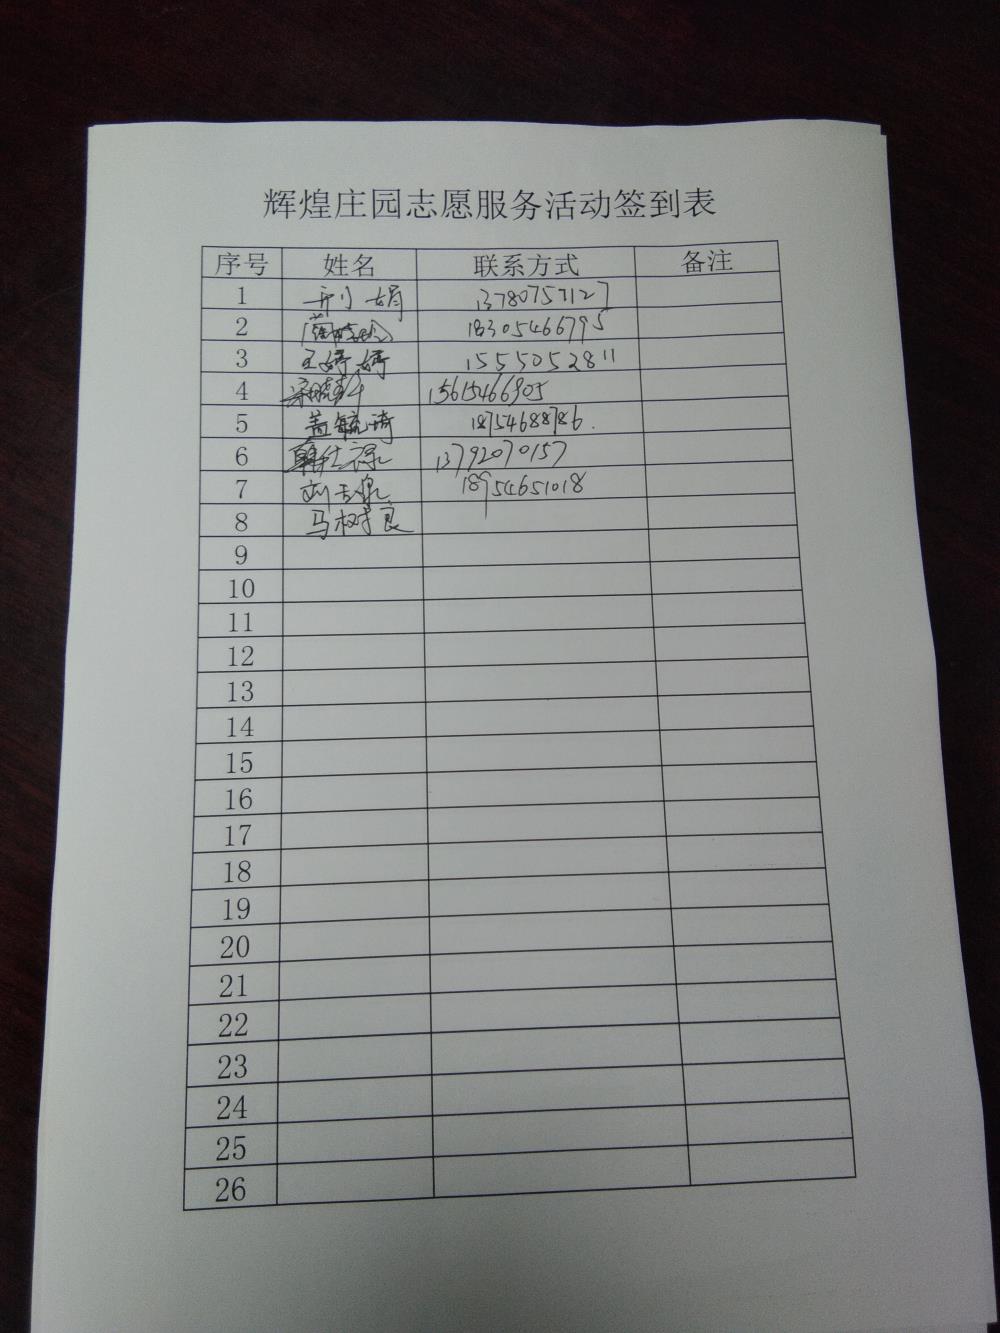 辉煌庄园志愿服务活动签到表
序号 姓名 联系方式 备注
1 荆娟 13780757127
2 18305466795
3 王婷婷 15550552811
4 15615466905
5 盖毓琦 18754688786.
6 韩仕禄 13792070157
7 刘玉泉 18954651018
8 马树良
9
10
11
12
13
14
15
16
17
18
19
20
21
22
23
24
25
26